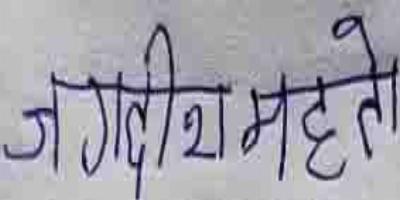 जगदीश महतो